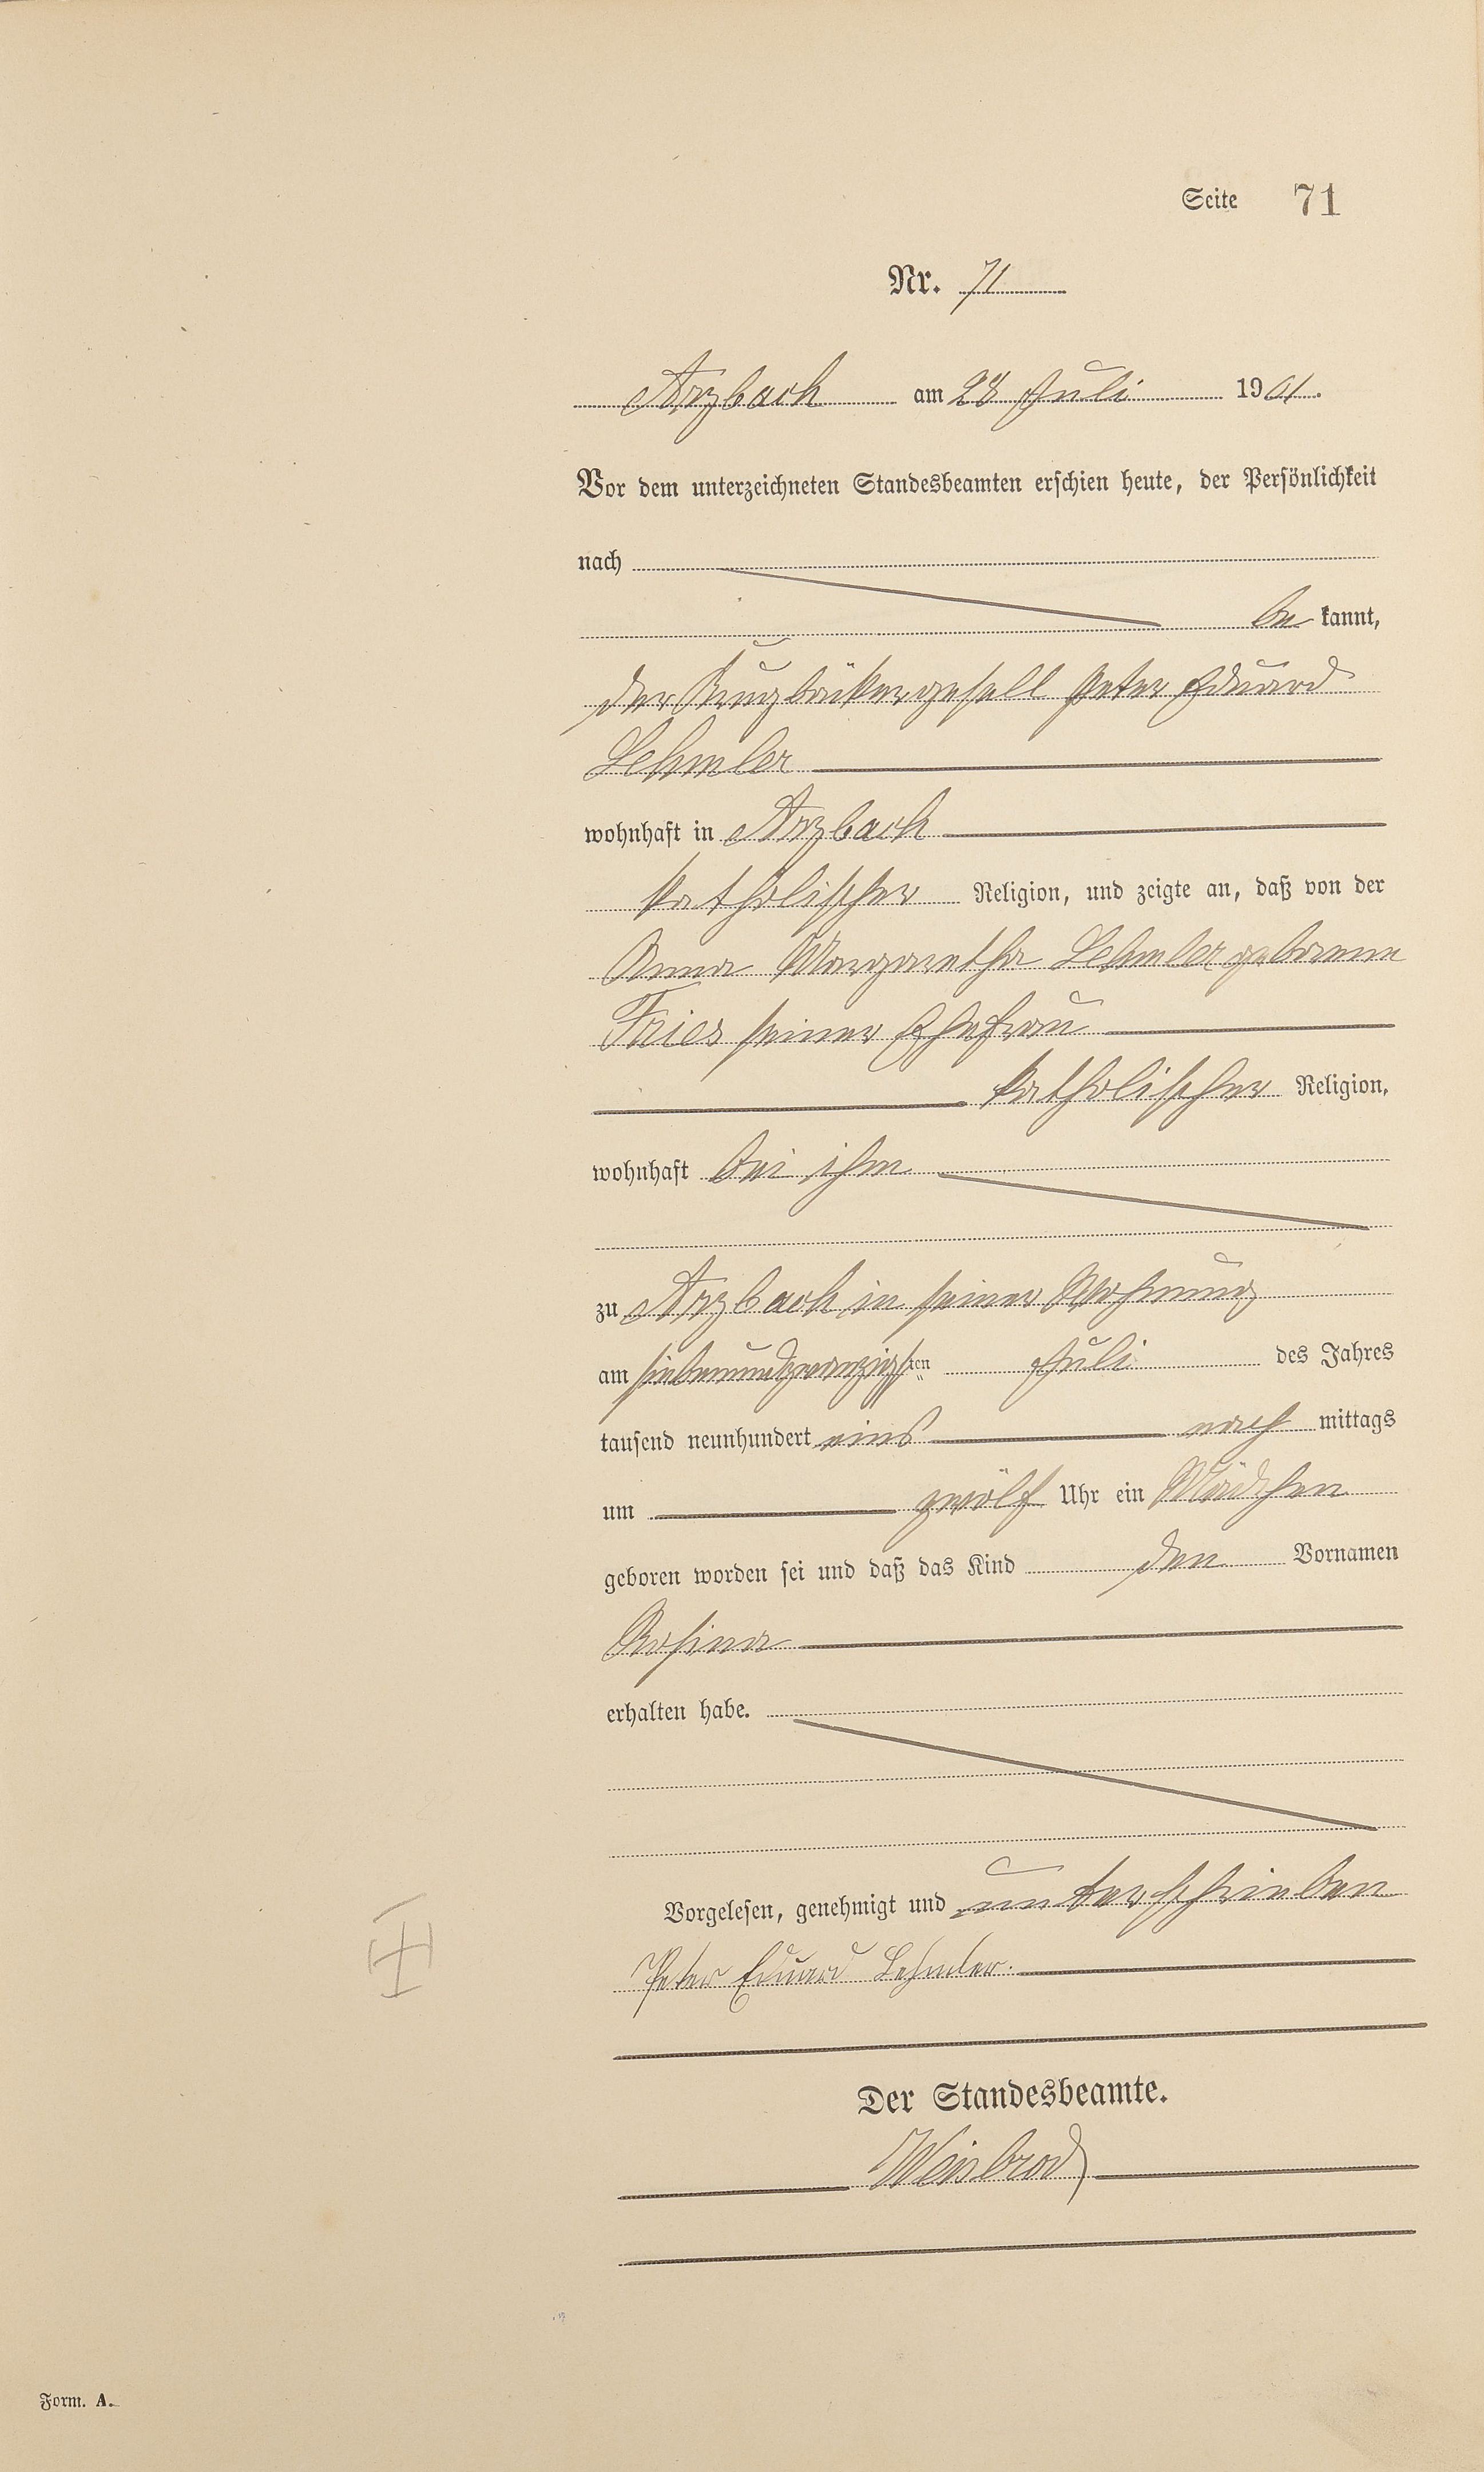 Seite 71
Nr. 71
Arzbach am 28 Juli 1901.
Vor dem unterzeichneten Standesbeamten erschien heute, der Persönlichkeit
nach
be kannt,
der Krugbäkergesell Peter Eduard
Lehmler
wohnhaft in Arzbach
katholischer Religion, und zeigte an, daß von der
Anna Margaretha Lehmler geborenen
Fries seiner Ehefrau
katholischer Religion,
wohnhaft bei ihm
zu Arzbach in seiner Wohnung
am siebenundzwanzigsten Juli des Jahres
tausend neunhundert eins nach mittags
um zwölf Uhr ein Mädchen
geboren worden sei und daß das Kind den Vornamen
Rosina
erhalten habe.
Vorgelesen, genehmigt und unterschrieben
Peter Eduard Lehmler.
Der Standesbeamte.
Weisbrod
Form. A.